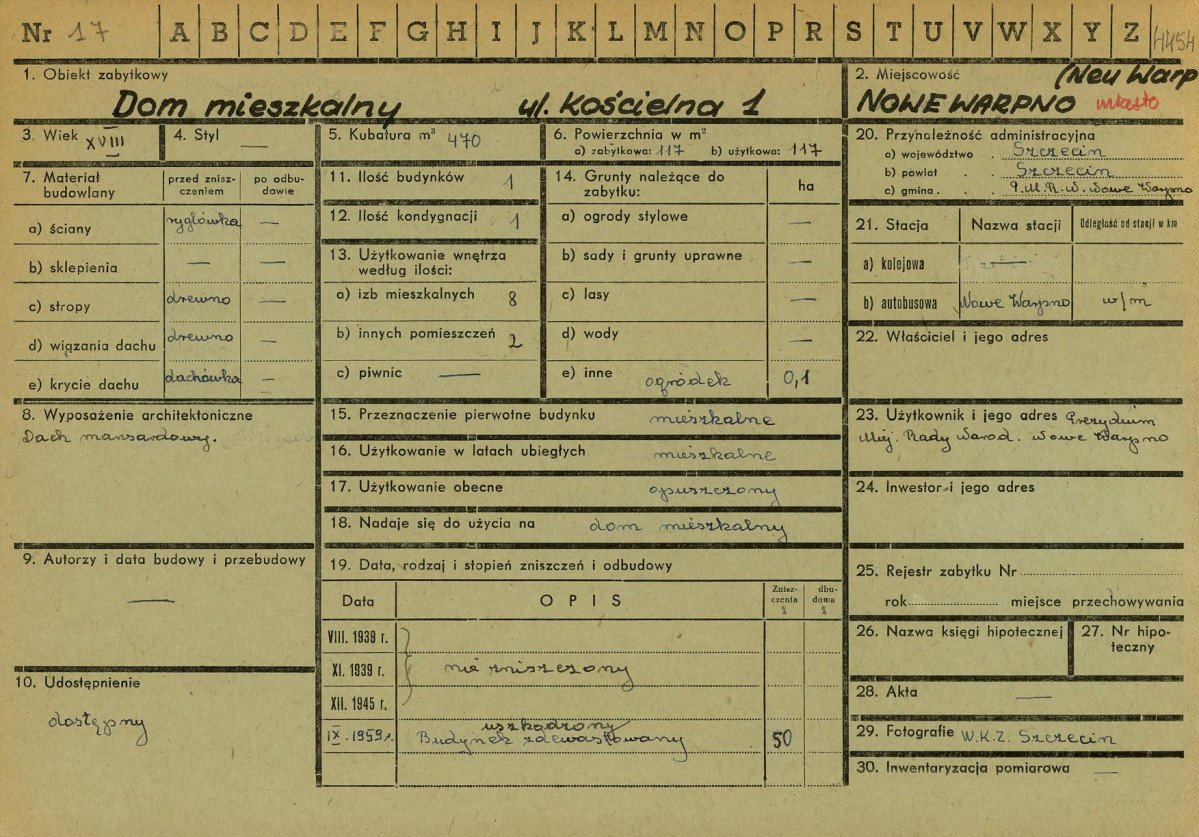 Nr 17 A B C D E F G H I J K L M N O P R S T U V W X Y Z 4454
1. Obiekt zabytkowy
Dom mieszkalny ul. Kościelna 1
2. Miejscowość (Neu Warp
NOWE WARPNO miasto
3. Wiek XVIII
4. Styl —
5. Kubatura m³ 470
6. Powierzchnia w m²
a) zabytkowa: 117 b) użytkowa: 117
7. Materiał budowlany
przed zniszczeniem
po odbudowie
a) ściany ryglówka —
b) sklepienia — —
c) stropy drewno —
d) wiązania dachu drewno —
e) krycie dachu dachówka —
8. Wyposażenie architektoniczne
Dach mansardowy.
9. Autorzy i data budowy i przebudowy
—
10. Udostępnienie
dostępny
11. Ilość budynków 1
12. Ilość kondygnacji 1
13. Użytkowanie wnętrza
według ilości:
a) izb mieszkalnych 8
b) innych pomieszczeń 2
c) piwnic —
14. Grunty należące do
zabytku: ha
a) ogrody stylowe —
b) sady i grunty uprawne —
c) lasy —
d) wody —
e) inne ogródek 0,1
15. Przeznaczenie pierwotne budynku mieszkalne
16. Użytkowanie w latach ubiegłych mieszkalne
17. Użytkowanie obecne opuszczony
18. Nadaje się do użycia na dom mieszkalny
19. Data, rodzaj i stopień zniszczeń i odbudowy
Data OPIS Zniszczenia % dbudowa %
VIII. 1939 r.
XI. 1939 r. nie zniszczony
XII. 1945 r.
uszkodzony
IX. 1959 r. Budynek zdewastowany 50
20. Przynależność administracyjna
a) województwo . Szczecin
b) powiat . . Szczecin
c) gmina . . . P.M.R.N. Nowe Warpno
21. Stacja Nazwa stacji Odległość od stacji w km
a) kolejowa —
b) autobusowa Nowe Warpno w/m
22. Właściciel i jego adres
23. Użytkownik i jego adres Prezydium
Miej. Rady Narod. Nowe Warpno
24. Inwestor i jego adres
25. Rejestr zabytku Nr
rok miejsce przechowywania
26. Nazwa księgi hipotecznej
27. Nr hipoteczny
28. Akta —
29. Fotografie W.K.Z. Szczecin
30. Inwentaryzacja pomiarowa —